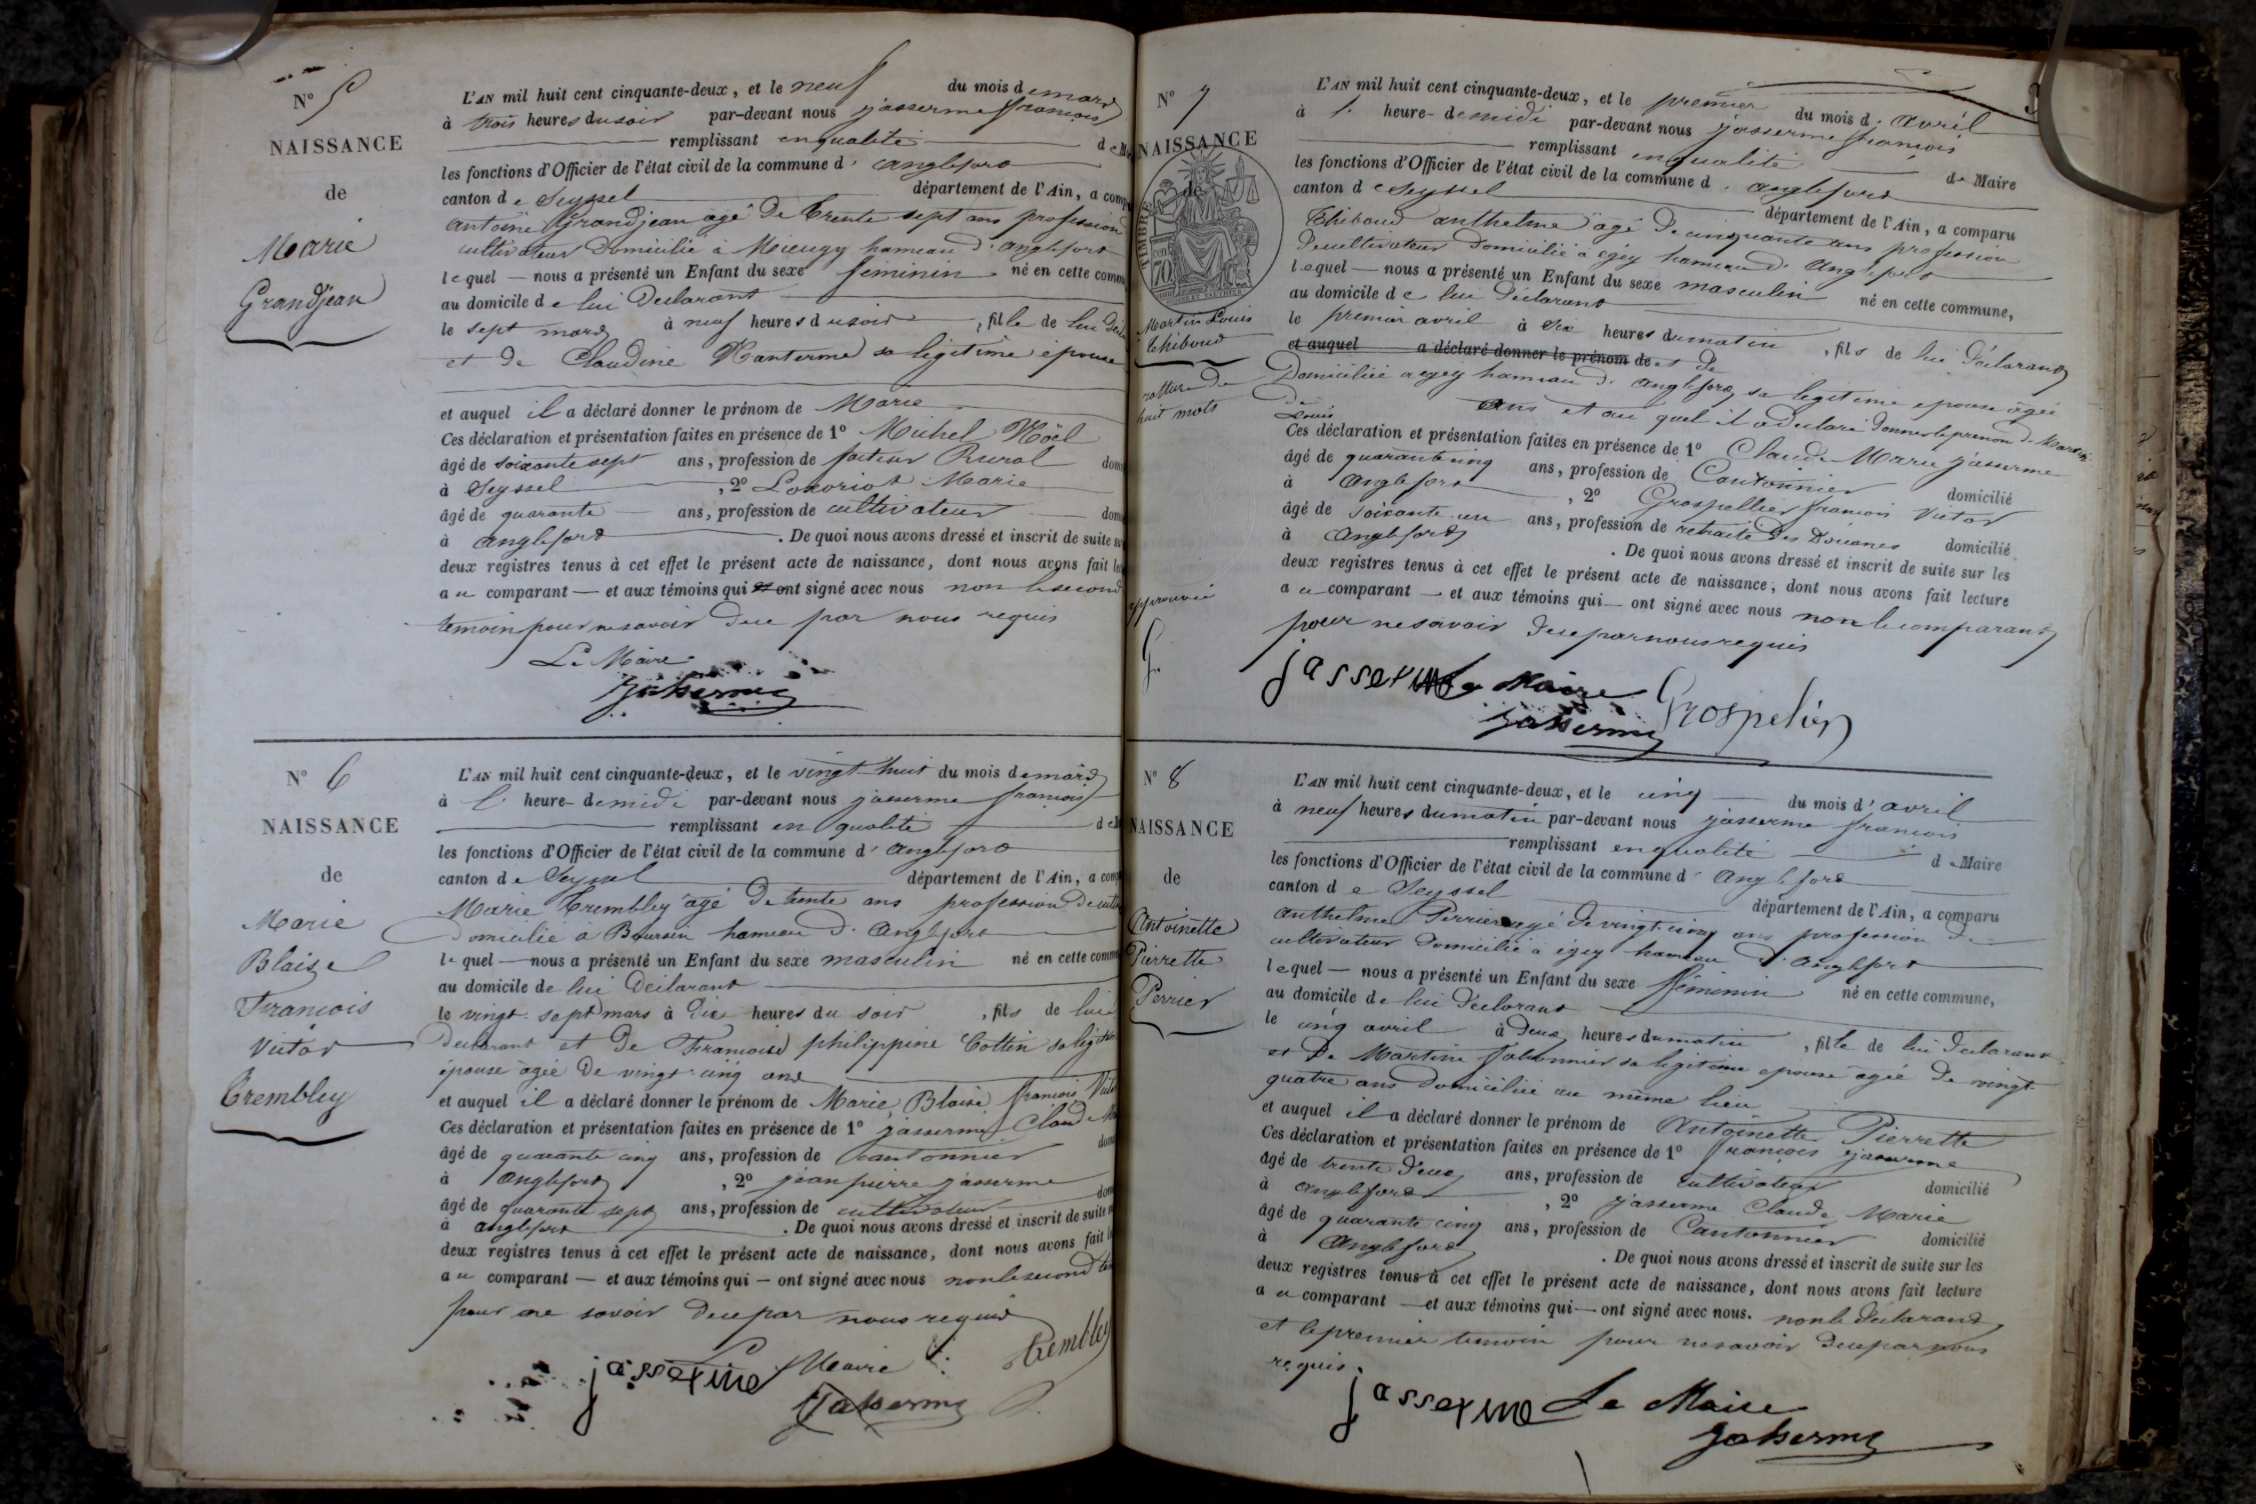 N° 5
NAISSANCE
de
Marie
Grandjean
L'AN mil huit cent cinquante-deux, et le neuf du mois de mars
à trois heures du soir par-devant nous jasserme françois
remplissant en qualité de M
les fonctions d'Officier de l'état civil de la commune d'anglefort
canton de Seyssel département de l'Ain, a comp
antoine Grandjean âgé de trente sept ans profession
cultivateur Domicilié à Mieugy hameau d'anglefort
lequel — nous a présenté un Enfant du sexe féminin né en cette comm
au domicile de lui Déclarant
le sept mars à neuf heures du soir, fille de lui Décl
et de Claudine Nanterme sa légitime épouse
et auquel il a déclaré donner le prénom de Marie
Ces déclaration et présentation faites en présence de 1° Michel Noël
âgé de soixante sept ans, profession de facteur Rural dom
à Seyssel, 2° Marie
âgé de quarante ans, profession de cultivateur dom
à anglefort. De quoi nous avons dressé et inscrit de suite su
deux registres tenus à cet effet le présent acte de naissance, dont nous avons fait le
au comparant — et aux témoins qui ont signé avec nous non le second
témoin pour ne savoir de ce par nous requis
Le Maire
Jasserme
N° 6
NAISSANCE
de
Marie
Blaise
François
Victor
Trembley
L'AN mil huit cent cinquante-deux, et le vingt-huit du mois de mars
à l' heure de midi par-devant nous jasserme françois
remplissant en qualité de M
les fonctions d'Officier de l'état civil de la commune d'anglefort
canton de Seyssel département de l'Ain, a comp
Marie Trembley âgé de trente ans profession de cult
domicilié a Boursin hameau d'anglefort
lequel — nous a présenté un Enfant du sexe masculin né en cette comm
au domicile de lui Déclarant
le vingt-sept mars à Dix heures du soir, fils de lui
Déclarant et de Francoise philippine Cottin sa légitim
épouse âgée de vingt-cinq ans
et auquel il a déclaré donner le prénom de Marie Blaise françois Vict
Ces déclaration et présentation faites en présence de 1° jasserme Claude M
âgé de quarante cinq ans, profession de Cantonnier dom
à anglefort, 2° jean pierre jasserme
âgé de quarante sept ans, profession de cultivateur dom
à anglefort. De quoi nous avons dressé et inscrit de suite s
deux registres tenus à cet effet le présent acte de naissance, dont nous avons fait l
au comparant — et aux témoins qui — ont signé avec nous non le second té
pour ne savoir de ce par nous requis
jasserme Maire Trembley
Jasserme
N° 7
NAISSANCE
de
TIMBRE
70
Martin Louis
Thiboud
rature de
huit mots
approuvée
G.
L'AN mil huit cent cinquante-deux, et le premier du mois d'avril
à l' heure de midi par-devant nous jasserme françois
remplissant en qualité de Maire
les fonctions d'Officier de l'état civil de la commune d'anglefort
canton de Seyssel département de l'Ain, a comparu
Thiboud anthelme âgé de cinquante ans profession
de cultivateur Domicilié à égey hameau d'Anglefort
lequel — nous a présenté un Enfant du sexe masculin né en cette commune,
au domicile de lui Déclarant
le premier avril à Six heures du matin, fils de lui Déclarant
et auquel a déclaré donner le prénom de et de
Domiciliée a egey hameau d'anglefort sa légitime épouse âgée
de ans et au quel il a déclaré donner le prénom de Martin
Louis
Ces déclaration et présentation faites en présence de 1° Claude Marie jasserme
âgé de quarante cinq ans, profession de Cantonnier domicilié
à Anglefort, 2° Grospellier françois Victor
âgé de soixante un ans, profession de retraité des Douanes domicilié
à Anglefort. De quoi nous avons dressé et inscrit de suite sur les
deux registres tenus à cet effet le présent acte de naissance, dont nous avons fait lecture
au comparant — et aux témoins qui — ont signé avec nous non le comparant
pour ne savoir de ce par nous requis
jasserme Le Maire Grospelier
Jasserme
N° 8
NAISSANCE
de
Antoinette
Pierrette
Perrier
L'AN mil huit cent cinquante-deux, et le cinq du mois d'avril
à neuf heures du matin par-devant nous jasserme françois
remplissant en qualité de Maire
les fonctions d'Officier de l'état civil de la commune d'Anglefort
canton de Seyssel département de l'Ain, a comparu
anthelme Perrier âgé de vingt-cinq ans profession de
cultivateur domicilié à égey hameau d'anglefort
lequel — nous a présenté un Enfant du sexe féminin né en cette commune,
au domicile de lui Déclarant
le cinq avril à Deux heures du matin, fille de lui Déclarant
et de Martine sa légitime épouse âgée de vingt-
quatre ans domiciliée au même lieu
et auquel il a déclaré donner le prénom de Antoinette Pierrette
Ces déclaration et présentation faites en présence de 1° françois jasserme
âgé de trente deux ans, profession de cultivateur domicilié
à Anglefort, 2° jasserme Claude Marie
âgé de quarante cinq ans, profession de Cantonnier domicilié
à Anglefort. De quoi nous avons dressé et inscrit de suite sur les
deux registres tenus à cet effet le présent acte de naissance, dont nous avons fait lecture
au comparant — et aux témoins qui — ont signé avec nous. non le Déclarant
et le premier témoin pour ne savoir de ce par nous
requis.
jasserme Le Maire
Jasserme